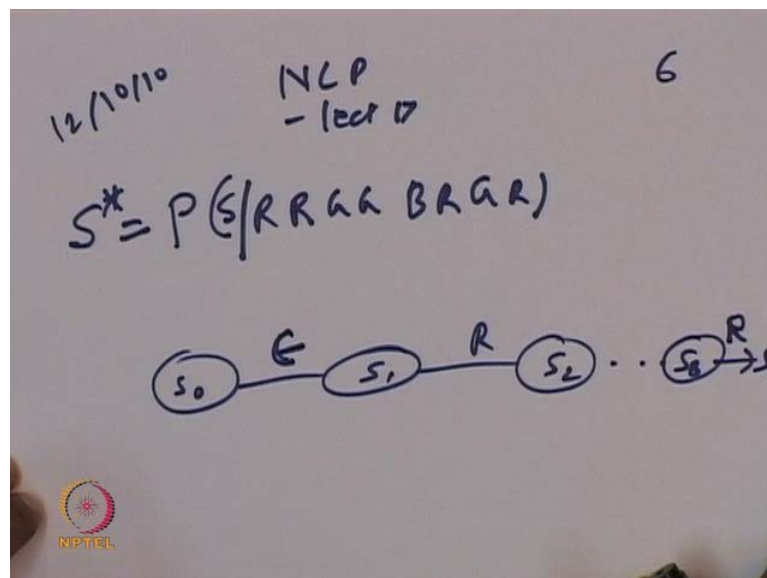 12/10/10 NLP 6
- lect 17
S* = P(S|RRGG BRGR)
S0 ϵ S1 R S2 .. S8 R S
NPTEL